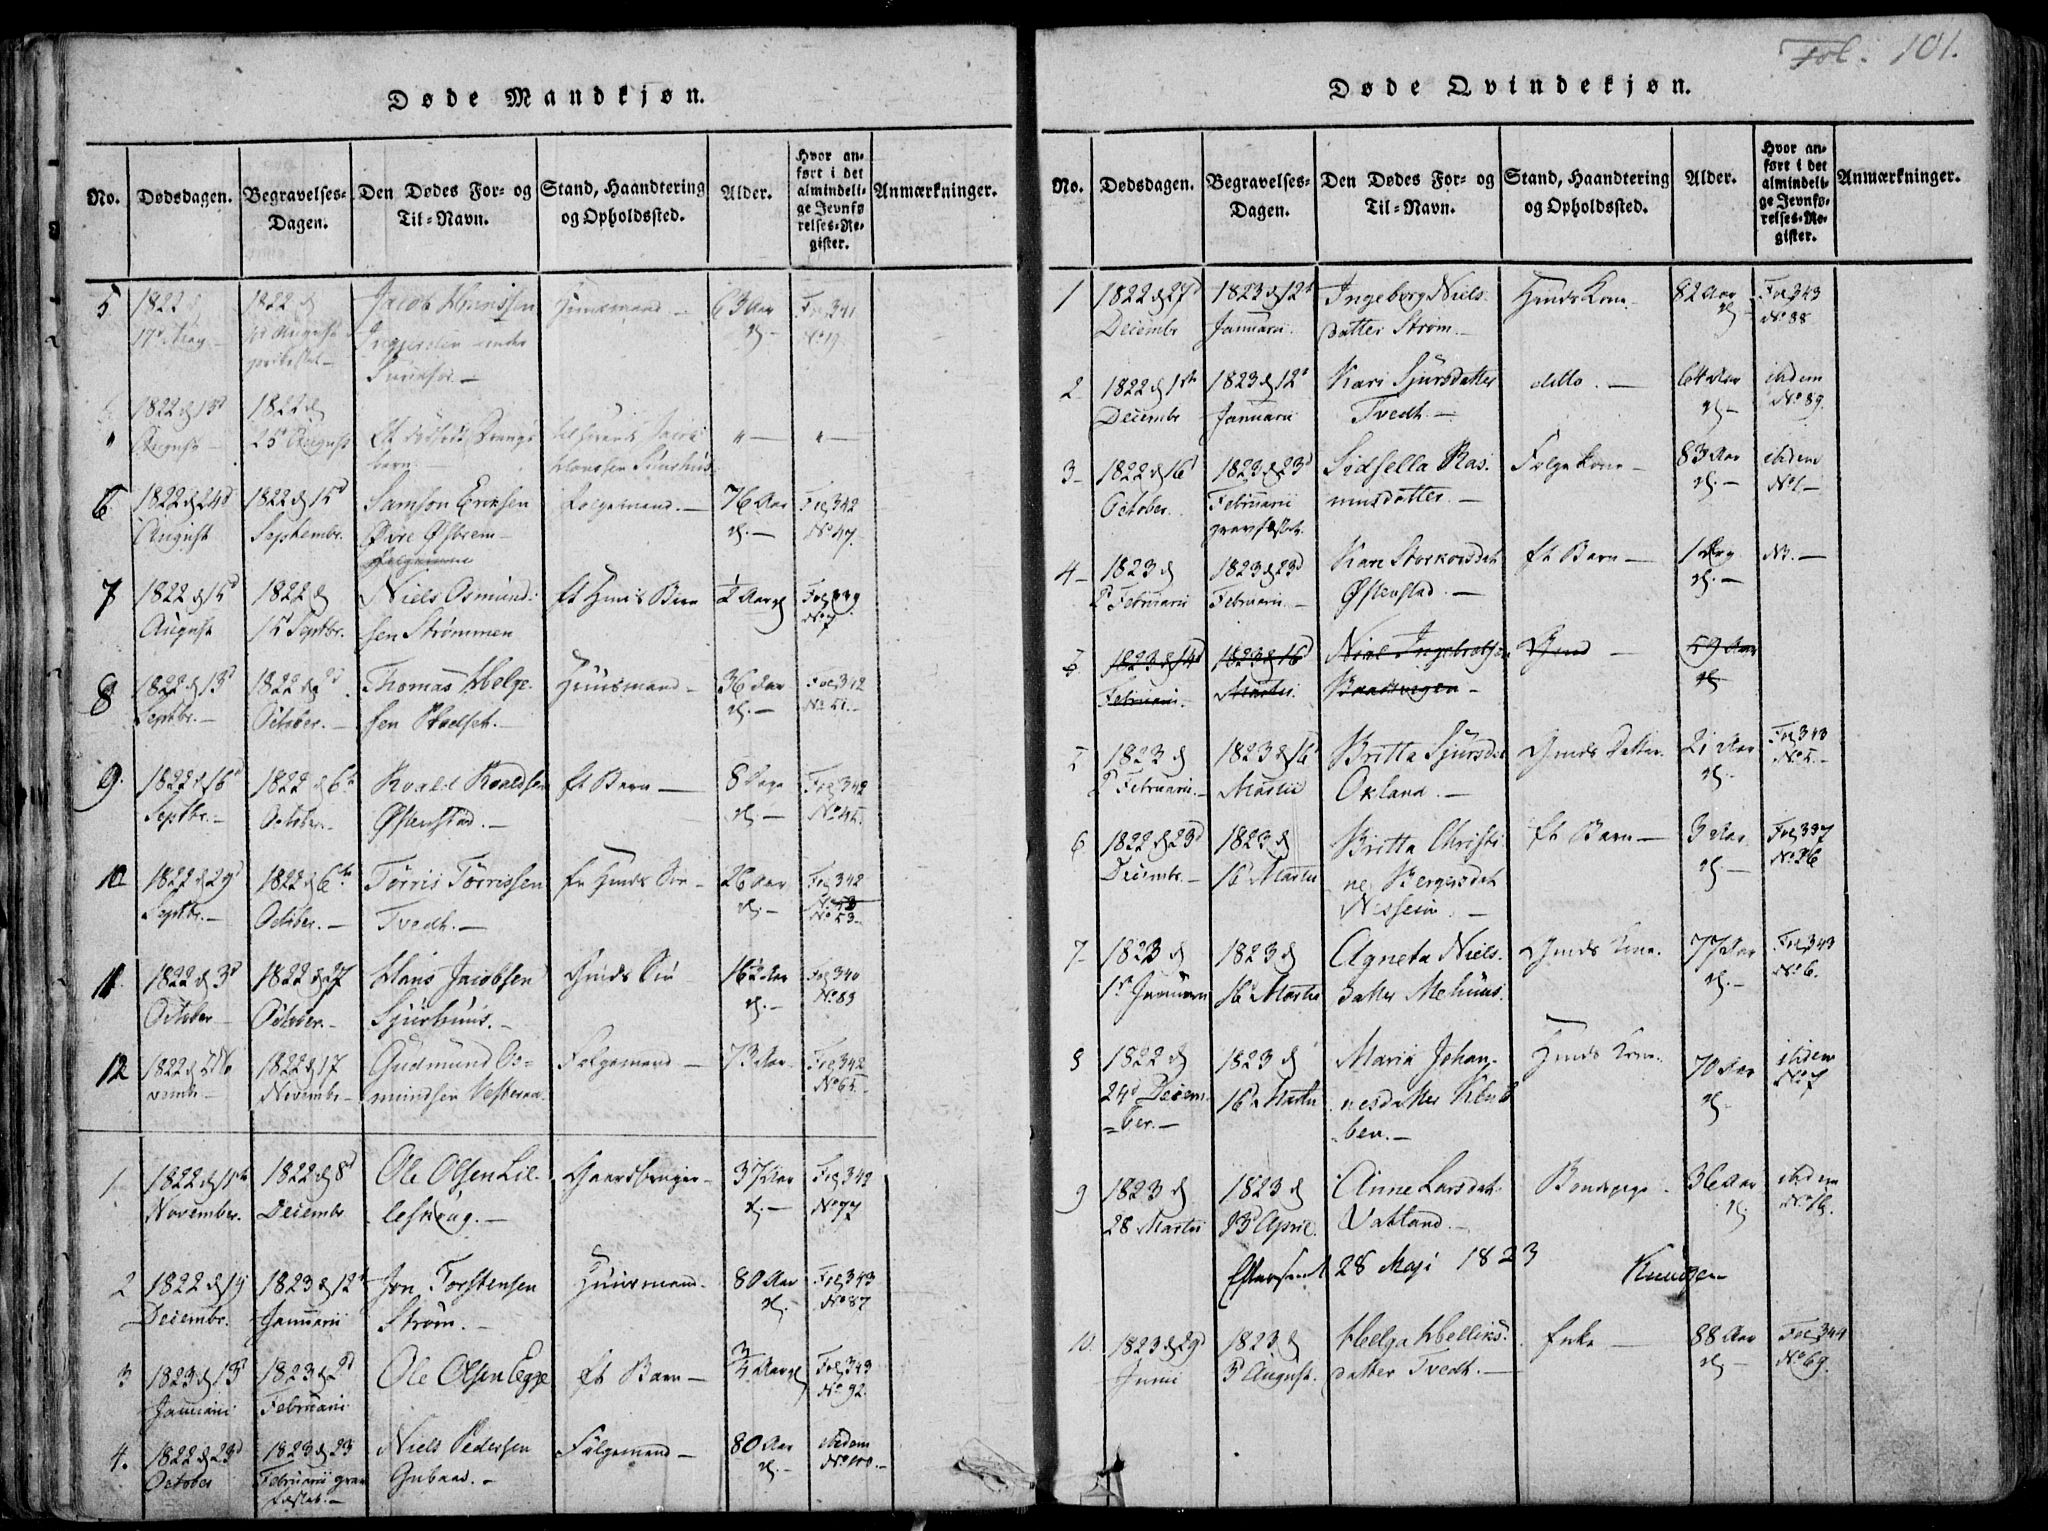 Fol: 101.
Døde Mandkjøn.
No.
Dødsdagen.
Begravelses-
Dagen.
Den Dødes For- og
Til-Navn.
Stand, Haandtering
og Opholdssted.
Alder.
Hvor an-
ført i det
almindeli-
ge Jevnfø-
relses-Re-
gister.
Anmærkninger.
5
1822 d
17d May
1822 d
August
Jacob
Huusmand
63 Aar
Fol 341
No 19
1822 d 13d
August
1822 d
25d August
Et dødfødt Drenge
barn
6
1822 d 24d
August
1822 d 15d
Septembr.
Samson Eriksen
Øvre Østrem
Folgemand
76 Aar
Fol 342
No 47.
7
1822 d 15d
August
1822 d
15 Septbr.
Niels Osmund-
sen Strømmen
et Huus Barn
1/2 Aar
No 7
8
1822 d 13d
Septbr.
1822 d 2d
October.
Thomas Helge-
sen
Huusmand
36 Aar
Fol 342
No 51.
9.
1822 d 16d
Septbr.
1822 d 6te
October.
Roald Roaldsen
Østenstad.
et Barn
8 Dage
Fol 342
No 45.
10
1822 d 29d
Septbr.
1822 d 6te
October.
Torris Torrissen
Tvedt.
26 Aar
Fol 342
No 53.
11.
1822 d 3d
October
1822 d 27
October.
Hans Jacobsen
Sjurhuus.
Gmds Søn
16 1/2 Aar
Fol 340
No 83
12
1822 d No-
vemb
1822 d 17
Novembr
Gudmund Os-
mundsen
Folgemand
73 Aar.
Fol 342
No 65
1
1822 d
November.
1822 d 8d
Decembr
Ole Olsen Lil-
leskoug.
Gaardbruger
37 Aar
Fol 342
No 77
2
1822 d 19
Decembr.
1823 d 12te
Januarii
Jon Torstensen
Strøm.
Huusmand
80 Aar
Fol 343
No 87
3
1823 d 13d
Januarii
1823 d 2d
Februarii
Ole Olsen Egge
et Barn
3/4 Aar
Fol 343
No 92
4.
1822 d 23d
October
1823 d 23
Februarii grav
festet.
Niels Pedersen
Gubaas.
Folgemand
80 Aar
ibidem
No 100.
Døde Qvindekjøn.
No.
Dødsdagen.
Begravelses-
Dagen.
Den Dødes For- og
Til-Navn.
Stand, Haandtering
og Opholdssted.
Alder.
Hvor an-
ført i det
almindeli-
ge Jevnfø-
relses-Re-
gister.
Anmærkninger.
1
1822 d 27d
Decembr
1823 d 12te
Januarii.
Ingeborg Niels-
datter Strøm.
Hmds Kone.
82 Aar
Fol 343
No 88
2
1822 d 1ste
Decembr
1823 d 12te
Januarii
Kari Sjursdatter
Tvedt.
ditto.
64 Aar
ibidem
No 89.
3
1822 d 16d
October.
1823 d 23d
Februarii
gravfestet.
Sidsella Ras-
musdatter.
Folge kone
83 Aar
ibidem
No 1
4
1823 d
2d Februarii
1823 d 23d
Februarii.
Kari Storkorsdat
Østenstad.
et Barn
1 Dag
5
1823 d 14d
Februarii.
1823 d 16d
Martii
Niel Ingebretsen
Gmd
59 Aar
5
1823 d
2d Februarii.
1823 d 16d
Martii
Britta Sjursdat
Okland.
Gmds Datter.
21 Aar
Fol 343
No 5.
6
1822 d 23d
Decembr.
1823 d
16d Martii
Britta Christi-
ne Bergersdat
et Barn
3 Aar.
Fol 337
No 36
7
1823 d
1ste Januarii
1823 d
16d Martii
Agneta Niels-
datter Mehuus
Gmds Kone.
77 Aar
Fol 343
No 6.
8
1822 d
24d Decem-
=ber.
1823 d
16d Martii
Maria Johan-
nesdatter
Hmds Kone.
70 Aar
ibidem
No 7
9
1823 d
28 Martii
1823 d
13d April.
Anne Larsdat.
Vatland.
36 Aar
ibidem
Efterseet 28 Maji 1823
10.
1823 d 29d
Junii
1823 d
3d August.
Helga Helliks-
datter Tvedt.
Enke
88 Aar
Fol 344
No 69.